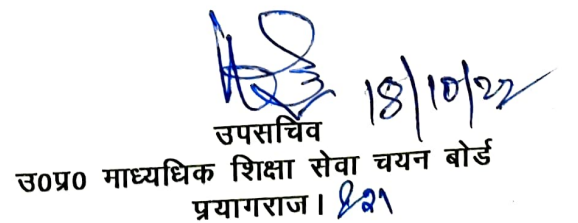 18/10/22
उपसचिव
उ०प्र० माध्यधिक शिक्षा सेवा चयन बोर्ड
प्रयागराज।